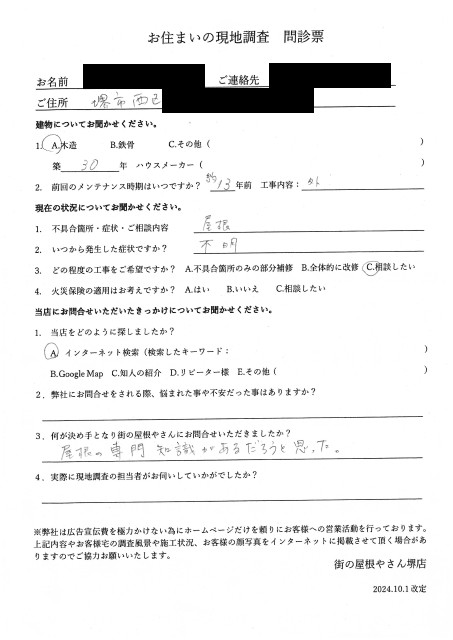 お住まいの現地調査　問診票
お名前　ご連絡先
ご住所　堺市西区
建物についてお聞かせください。
1. A.木造　B.鉄骨　C.その他（　）
築 30 年　ハウスメーカー（　）
2. 前回のメンテナンス時期はいつですか？ 約13年前　工事内容：外
現在の状況についてお聞かせください。
1. 不具合箇所・症状・ご相談内容　屋根
2. いつから発生した症状ですか？　不明
3. どの程度の工事をご希望ですか？ A.不具合箇所のみの部分補修　B.全体的に改修　C.相談したい
4. 火災保険の適用はお考えですか？ A.はい　B.いいえ　C.相談したい
当店にお問合せいただいたきっかけについてお聞かせください。
1. 当店をどのように探しましたか？
A インターネット検索（検索したキーワード：　）
B.Google Map　C.知人の紹介　D.リピーター様　E.その他（　）
2. 弊社にお問合せをされる際、悩まれた事や不安だった事はありますか？
3. 何が決め手となり街の屋根やさんにお問合せいただきましたか？
屋根の専門知識があるだろうと思った。
4. 実際に現地調査の担当者がお伺いしていかがでしたか？
※弊社は広告宣伝費を極力かけない為にホームページだけを頼りにお客様への営業活動を行っております。
上記内容やお客様宅の調査風景や施工状況、お客様の顔写真をインターネットに掲載させて頂く場合があ
りますのでご協力お願いいたします。
街の屋根やさん堺店
2024.10.1 改定